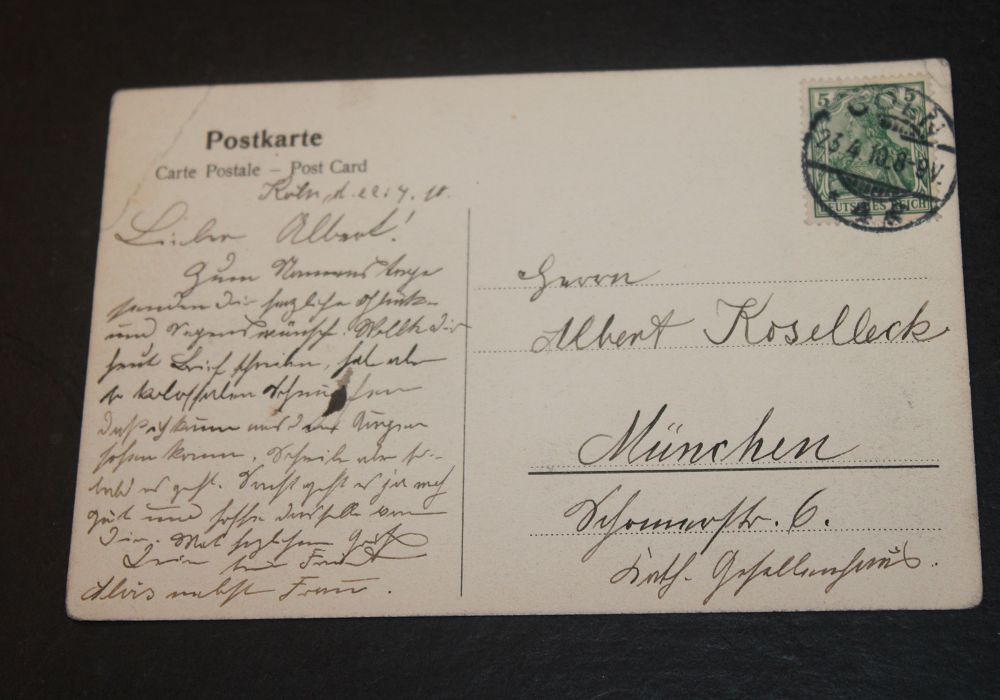 Postkarte
Carte Postale – Post Card
Köln, d. 22.4.10.
Lieber Albert!
Zum Namenstage
senden Dir herzliche Glück-
und Segenswünsche. Wollte Dir
heut Brief schreiben, hab aber
so kolossalen Schnupfen
daß ich kaum aus den Augen
sehen kann. Schreibe aber so-
bald es geht. Sonst geht es ja noch
gut und hoffe dasselbe von
Dir. Mit herzlichem Gruß
Dein Freund
Alois nebst Frau.
5 5
CÖLN
23.4.10.8-9V.
DEUTSCHES REICH
Herrn
Albert Koselleck
München
Schommerstr. 6.
Kath. Gesellenhaus.